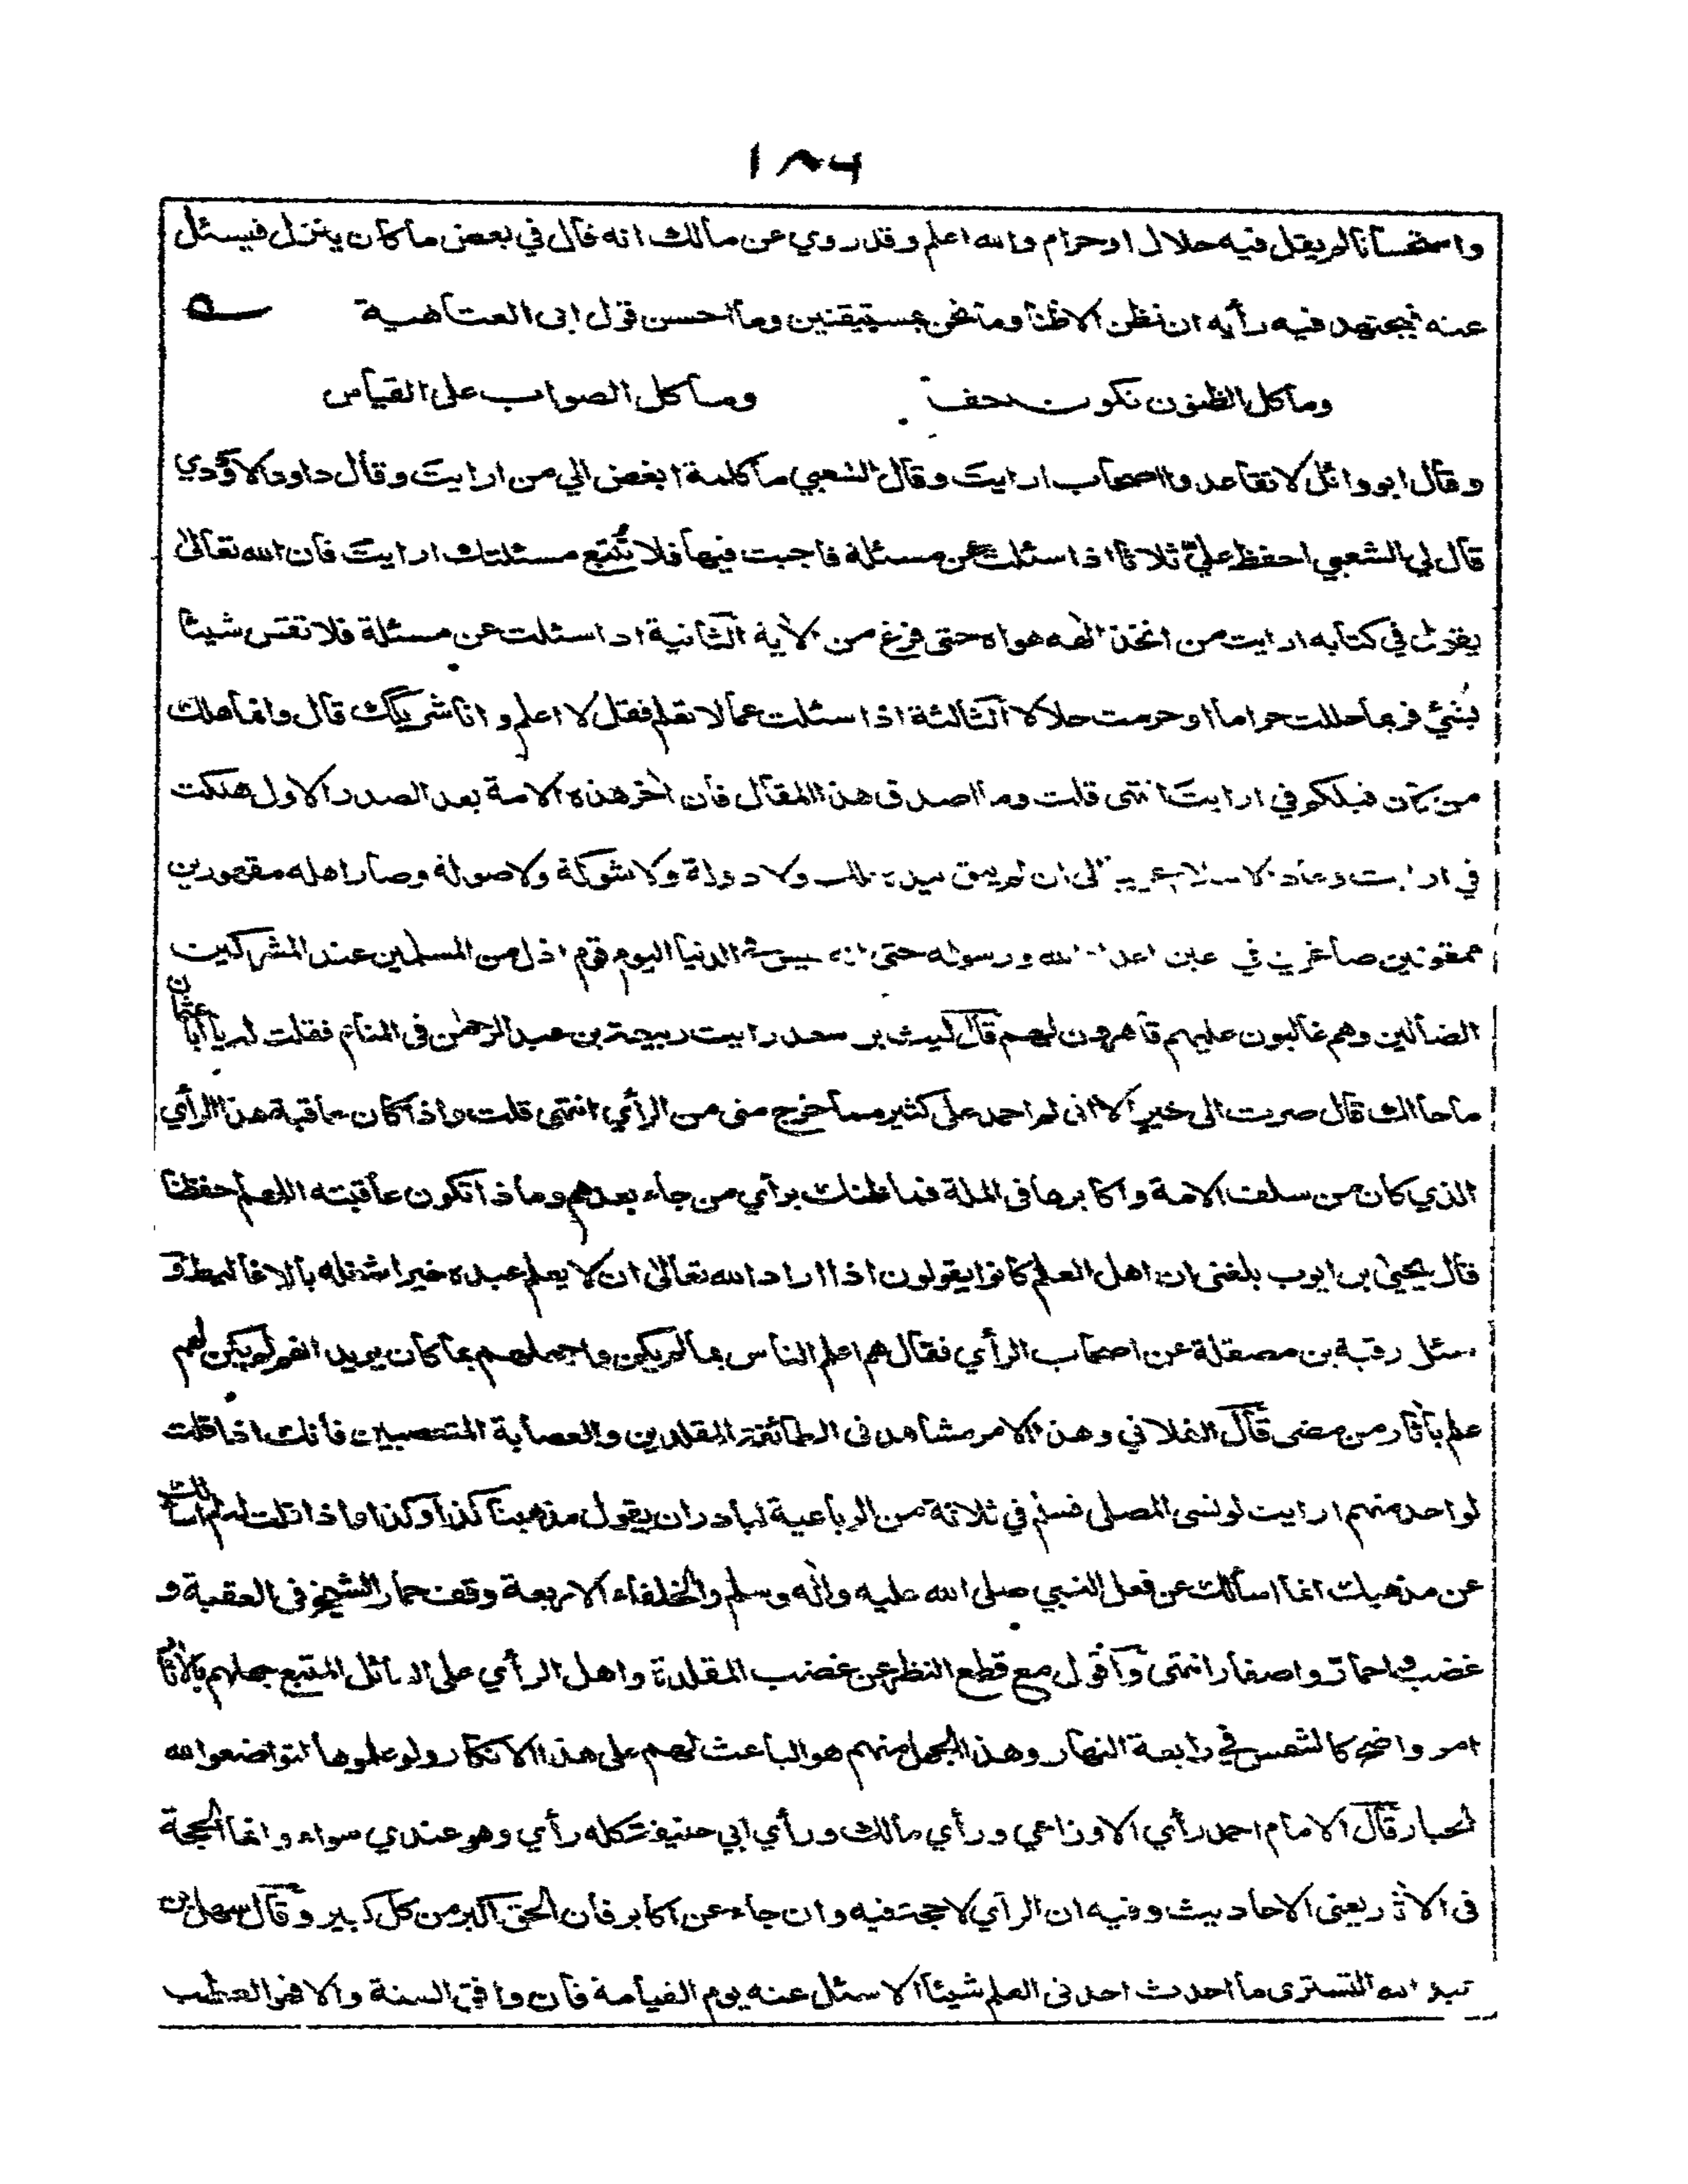 ١٨٦
واستحسانا لم يقل فيه حلال او حرام والله اعلم وقد روي عن مالك انه قال في بعض ما كان ينزل فيسئل
عنه فيجتهد فيه رأيه ان نظن الا ظنا وما نحن بمستيقنين وما احسن قول ابى العتاهية
وما كل الظنون تكون حقا وما كل الصواب على القياس
وقال ابو وائل لا تقاعدوا اصحاب ارايت وقال الشعبي ما كلمة ابغض الي من ارايت وقال داود الاودي
قال لي الشعبي احفظ عليّ ثلاثا اذا سئلت عن مسئلة فاجبت فيها فلا تُتبع مسئلتك ارايت فان الله تعالى
يقول في كتابه ارايت من اتخذ الهه هواه حتى فرغ من الاية الثانية اذا سئلت عن مسئلة فلا تقس شيئا
بشئ فربما حللت حراما او حرمت حلالا الثالثة اذا سئلت عما لا تعلم فقل لا اعلم وانا شريكك قال وانما هلك
من كان قبلكم في ارايت انتهى قلت وما اصدق هذا المقال فان اخر هذه الامة بعد الصدر الاول هلكت
في ارايت وعاد الاسلام غريبا الى ان لم يبق بيده ملك ولا دولة ولا شوكة ولا صولة وصار اهله مقهورين
ممقوتين صاغرين في اعين اعداء الله ورسوله حتى انه ليس في الدنيا اليوم قوم اذل من المسلمين عند المشركين
الضالين وهم غالبون عليهم قاهرون لهم قال ليث بن سعد رايت ربيعة بن عبد الرحمٰن فى المنام فقلت له يا ابا عثمان
ما حالك قال صرت الى خير الا انى لم احمد على كثير مما خرج منى من الرأي انتهى قلت واذا كان عاقبة هذا الرأي
الذي كان من سلف الامة واكابرها فى الملة فما ظنك برأي من جاء بعدهم وما ذا تكون عاقبته اللهم احفظنا
قال يحيىٰ بن ايوب بلغنى ان اهل العلم كانوا يقولون اذا اراد الله تعالىٰ ان لا يعلم عبده خيرا شغله بالاغاليط و
سئل رقبة بن مصقلة عن اصحاب الرأي فقال هم اعلم الناس بما لم يكن واجهلهم بما كان يريد انهم لم يكن لهم
علم باثار من مضى قال الفلاني وهذا الامر مشاهد فى الطائفة المقلدين والعصابة المتعصبين فانك اذا قلت
لواحد منهم ارايت لو نسى المصلى فسلم في ثلاثة من الرباعية لبادر ان يقول مذهبنا كذا وكذا واذا قلت له لم اسألك
عن مذهبك انما اسألك عن فعل النبي صلى الله عليه واٰله وسلم والخلفاء الاربعة وقف حمار الشيخ فى العقبة و
غضب واحمارّ واصفار انتهى واقول مع قطع النظر عن غضب المقلدة واهل الرأي على السائل المتبع جهلهم بالاثار
امر واضح كالشمس في رابعة النهار وهذا الجهل منهم هو الباعث لهم على هذا الانكار ولو علموها لتواضعوا لله
الجبار قال الامام احمد رأي الاوزاعي ورأي مالك ورأي ابي حنيفة كله رأي وهو عندي سواء وانما الحجة
فى الاثار يعنى الاحاديث وفيه ان الرأي لا حجة فيه وان جاء عن اكابر فان الحق اكبر من كل كبير وقال سهل بن
عبد الله التسترى ما احدث احد فى العلم شيئا الا سئل عنه يوم القيامة فان وافق السنة والا فهو العطب